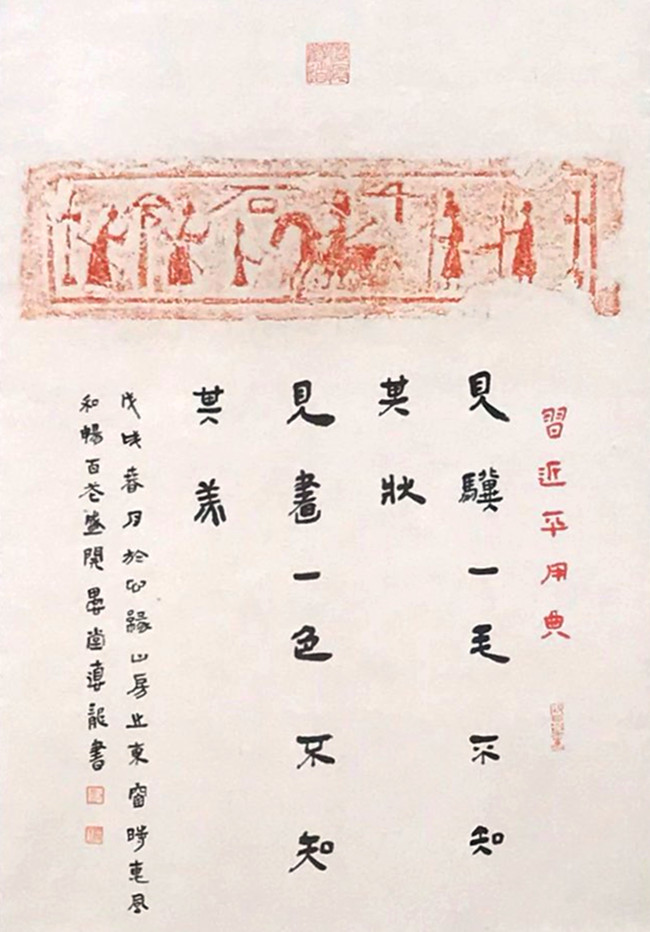 習近平用典
見驥一毛不知
其狀
見畫一色不知
其美
戊戌春月於心緣山房之東窗時惠風
和暢百花盛開墨堂尊龍書